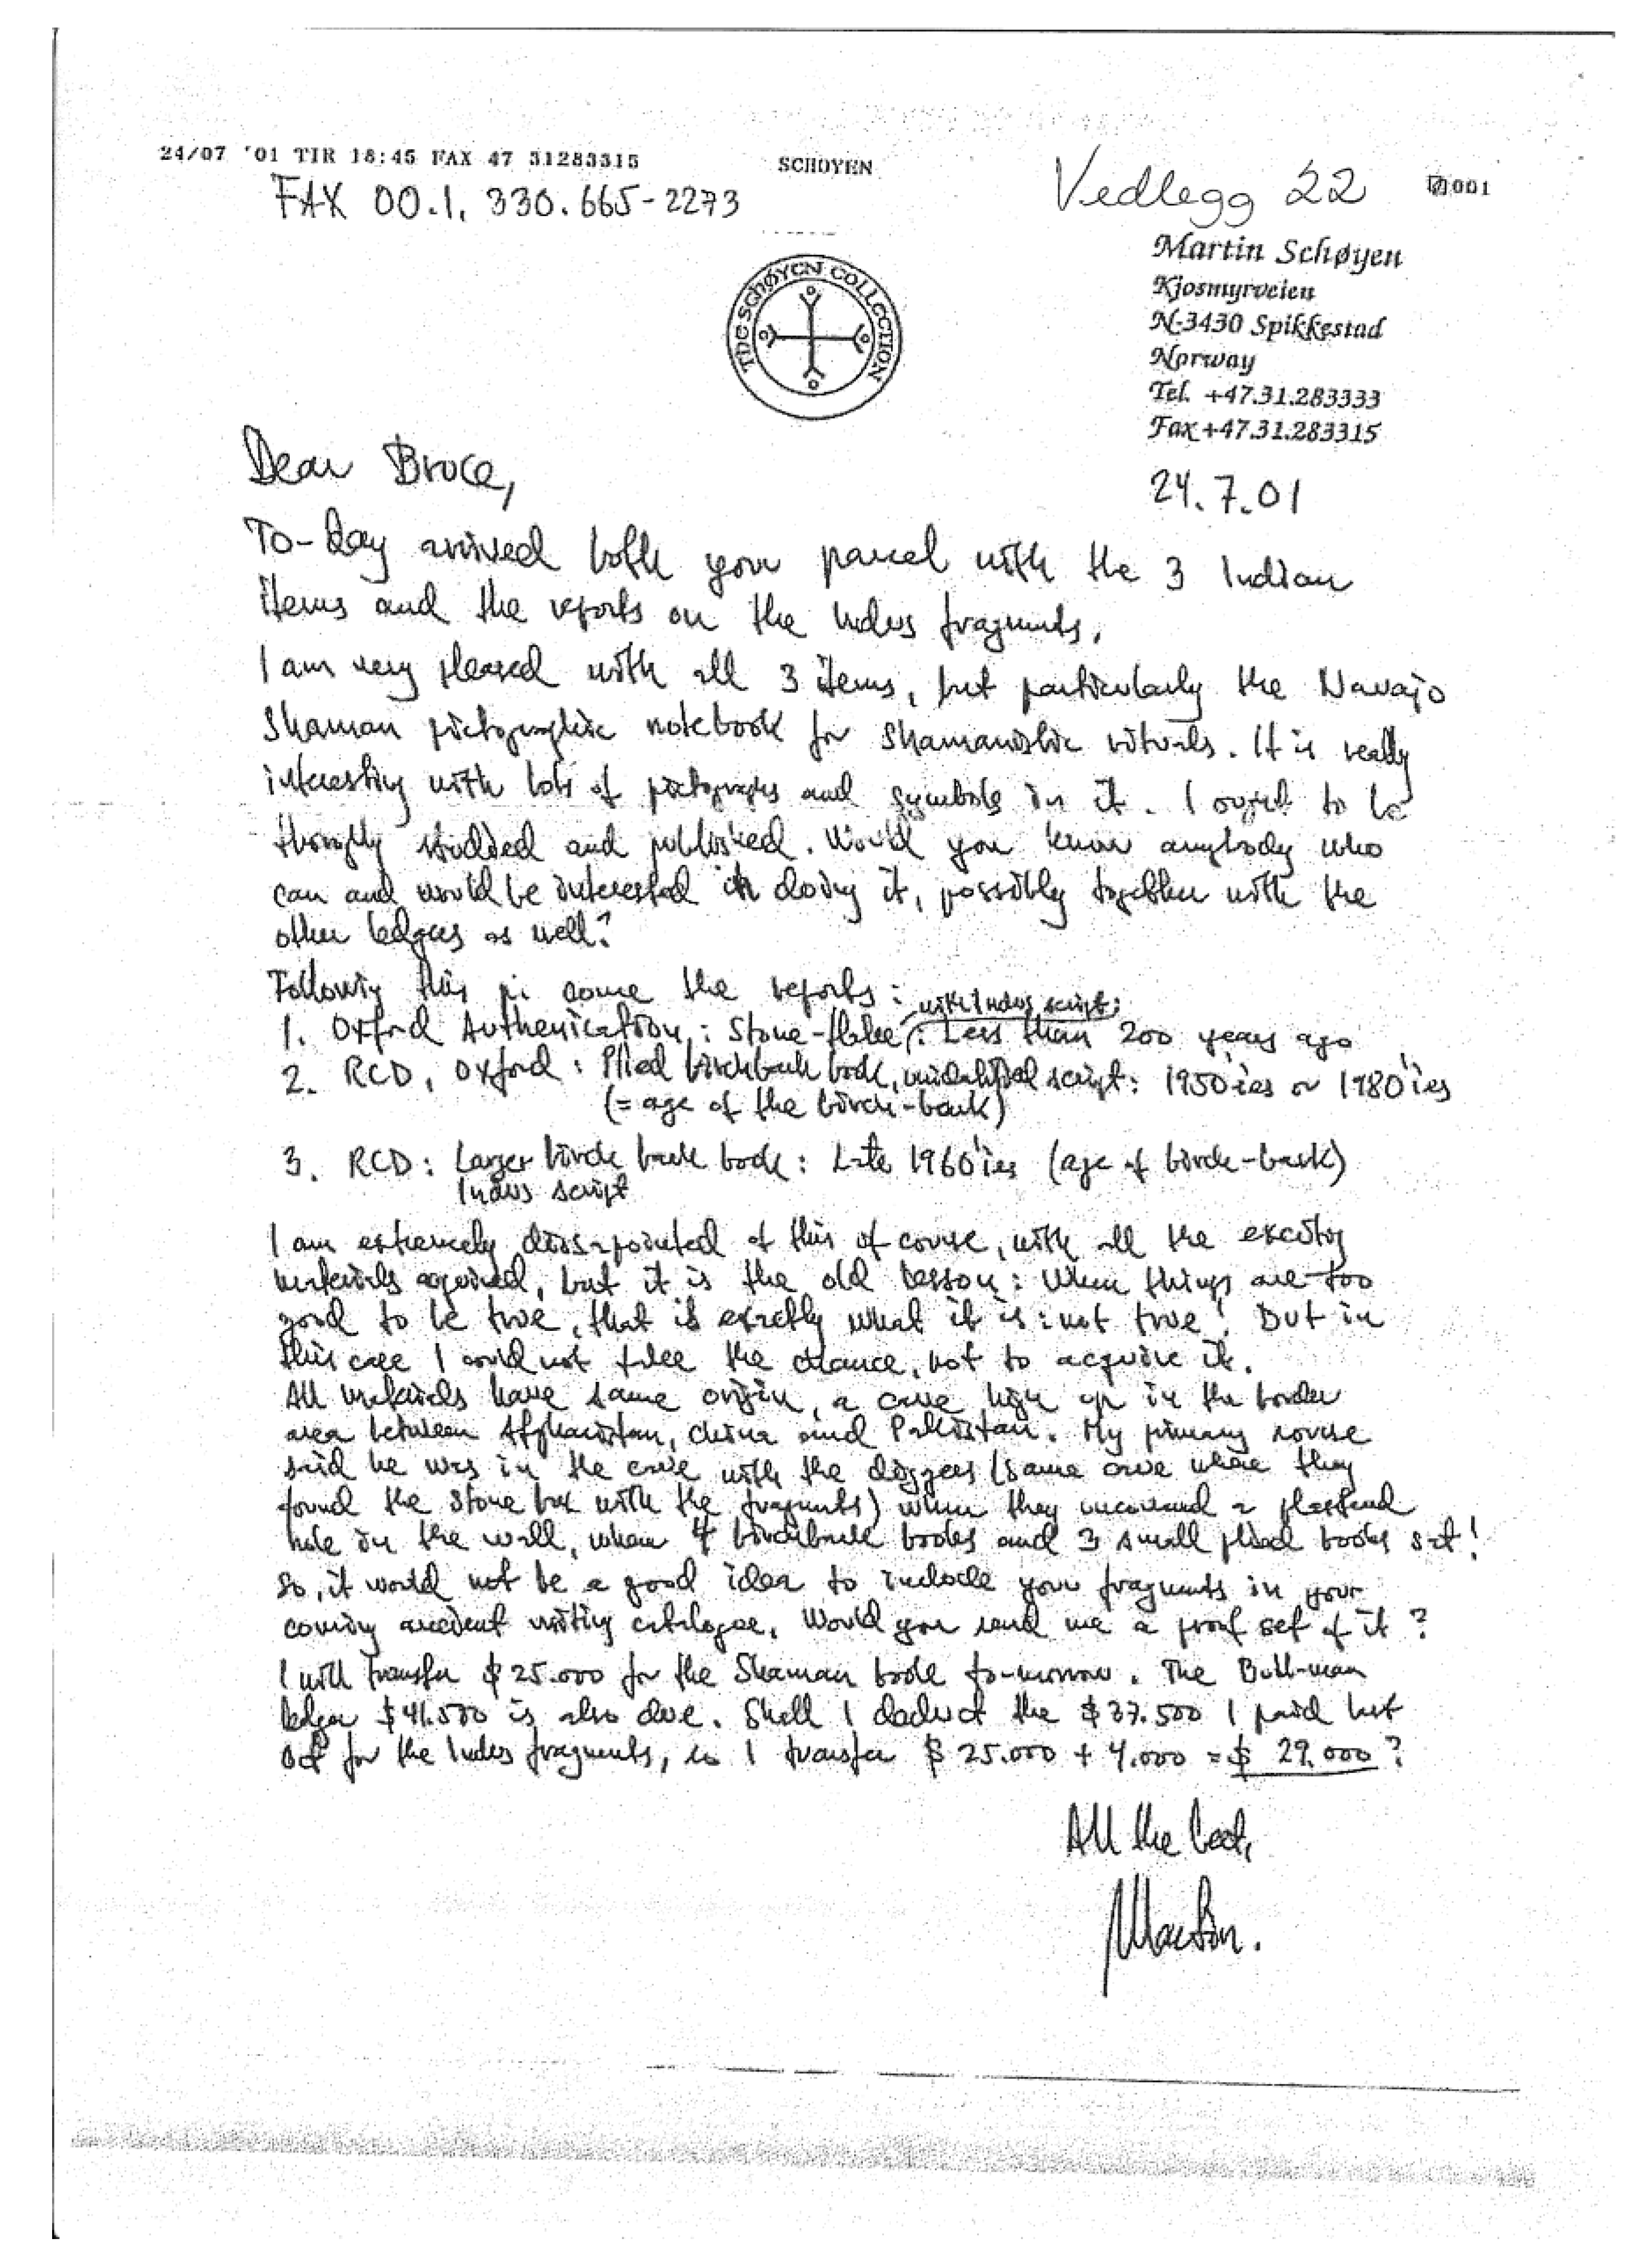 24/07 '01 TIR 18:45 FAX 47 31283315 SCHOYEN 001
FAX 00.1. 330.665-2273
Vedlegg 22
THE SCHØYEN COLLECTION
Martin Schøyen
Kjosmyrveien
N-3430 Spikkestad
Norway
Tel. +47.31.283333
Fax +47.31.283315
24.7.01
Dear Bruce,
To-day arrived both your parcel with the 3 Indian
items and the reports on the Indus fragments.
I am very pleased with all 3 items, but particularly the Navajo
Shaman pictographic notebook for shamanistic rituals. It is really
interesting with lots of pictographs and symbols in it. I ought to be
throughly studied and published. Would you know anybody who
can and would be interested in doing it, possibly together with the
other ledgers as well?
Following this p. come the reports:
with Indus script:
1. Oxford Authenication,: Stone-flake: Less than 200 years ago
2. RCD, Oxford: Plied birchbark book, unidentified script: 1950'ies or 1980'ies
(= age of the birch-bark)
3. RCD: Larger birch bark book: Late 1960'ies (age of birch-bark)
Indus script
I am extremely dissapointed of this of course, with all the exciting
materials aquired, but it is the old lesson: When things are too
good to be true, that is exactly what it is: not true! But in
this case I could not take the chance, not to acquire it.
All materials have same origin, a cave high up in the border
area between Afghanistan, China and Pakistan. My primary source
said he was in the cave with the diggers (same cave where they
found the stone box with the fragments) when they uncovered a plastered
hole in the wall, where 4 birchbark books and 3 small plied books sat!
So, it would not be a good idea to include your fragments in your
coming ancient writing catalogue. Would you send me a proof set of it?
I will transfer $25.000 for the Shaman book to-morrow. The Bull-man
ledger $41.500 is also due. Shall I deduct the $37.500 I paid last
Oct for the Indus fragments, so I transfer $25.000 + 4.000 = $ 29.000?
All the best,
Martin.